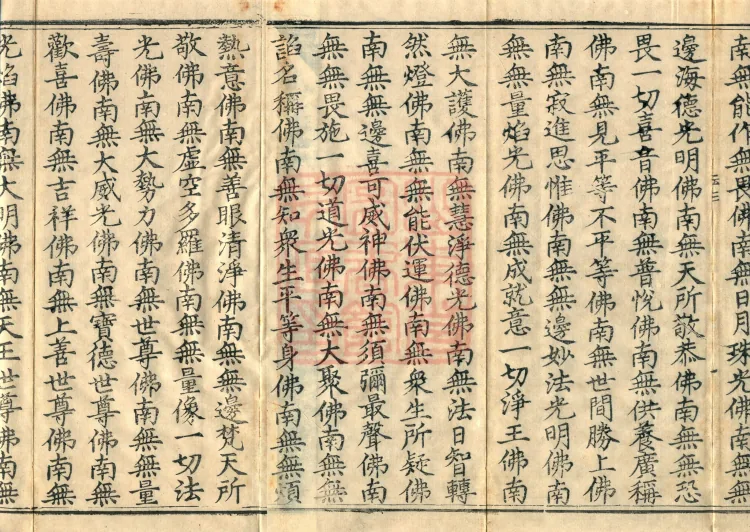 南無能作無畏佛南無日月珠光佛南無
邊海德光明佛南無天所敬恭佛南無無恐
畏一切喜音佛南無普悅佛南無供養廣稱
佛南無見平等不平等佛南無世間勝上佛
南無寂進思惟佛南無無邊妙法光明佛南
無無量焰光佛南無成就意一切淨王佛南
無大護佛南無慧淨德光佛南無法日智轉
然燈佛南無能伏運佛南無衆生所疑佛
南無無邊喜可威神佛南無須彌最聲佛南
無無畏施一切道光佛南無大聚佛南無無
諂名稱佛南無知衆生平等身佛南無無煩
熱意佛南無善眼清淨佛南無無邊梵天所
敬佛南無虛空多羅佛南無無量像一切法
光佛南無大勢力佛南無世尊佛南無無量
壽佛南無大威光佛南無寶德世尊佛南無
歡喜佛南無吉祥佛南無上善世尊佛南無
光焰佛南無大明佛南無天王世尊佛南無